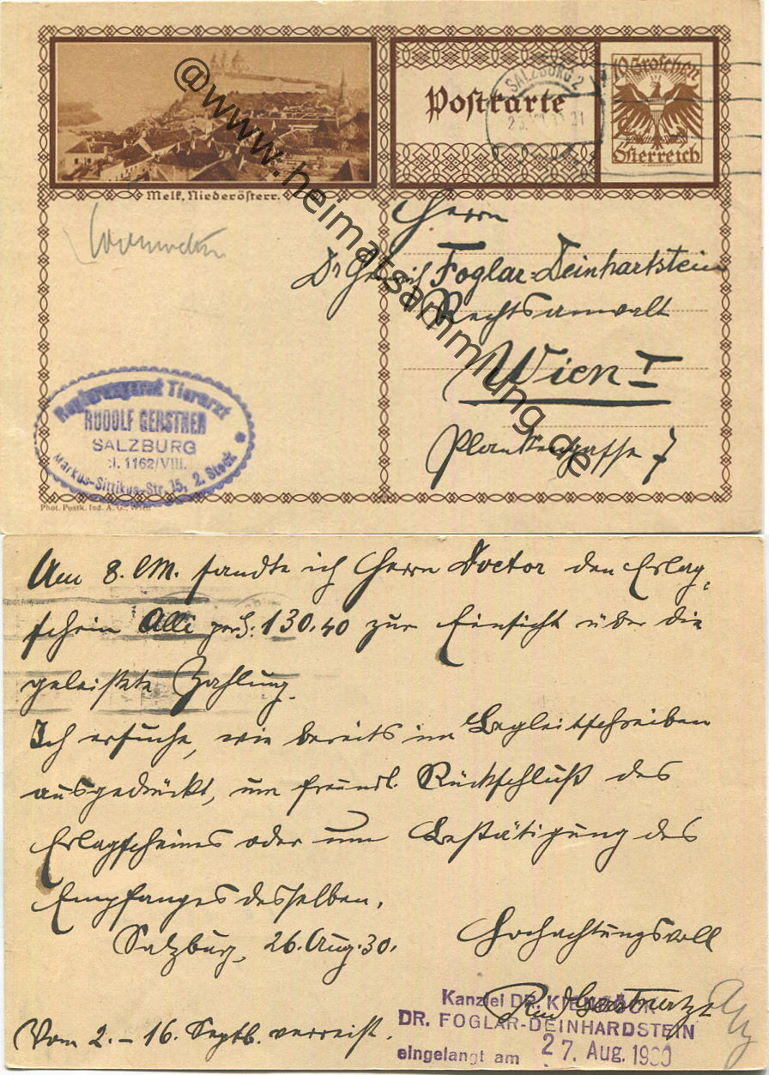 Postkarte
10 Groschen
Österreich
SALZBURG 2
Melk, Niederösterr.
@www.heimatsammlung.de
Herrn
Dr Foglar-Deinhartstein
Rechtsanwalt
Wien I
Plankengasse 7
Regierungsrat Tierarzt
RUDOLF GERSTNER
SALZBURG
1162/VIII.
Markus-Sittikus-Str. 15, 2. Stock
Phot. Postk. Ind. A. G., Wien
Am 8. l.M. sandte ich Herrn Doctor den Erlag-
schein Alli per S. 130.40 zur Einsicht über die
geleistete Zahlung.
Ich ersuche, wie bereits im Begleitschreiben
ausgedrückt, um freundl. Rückschluß des
Erlagscheines oder um Bestätigung des
Empfanges desselben.
Salzburg, 26. Aug. 30.
Hochachtungsvoll
Rud Gerstner
Vom 2. - 16. Septb. verreist.
Kanzlei DR.
DR. FOGLAR-DEINHARDSTEIN
eingelangt am 27. Aug. 1930